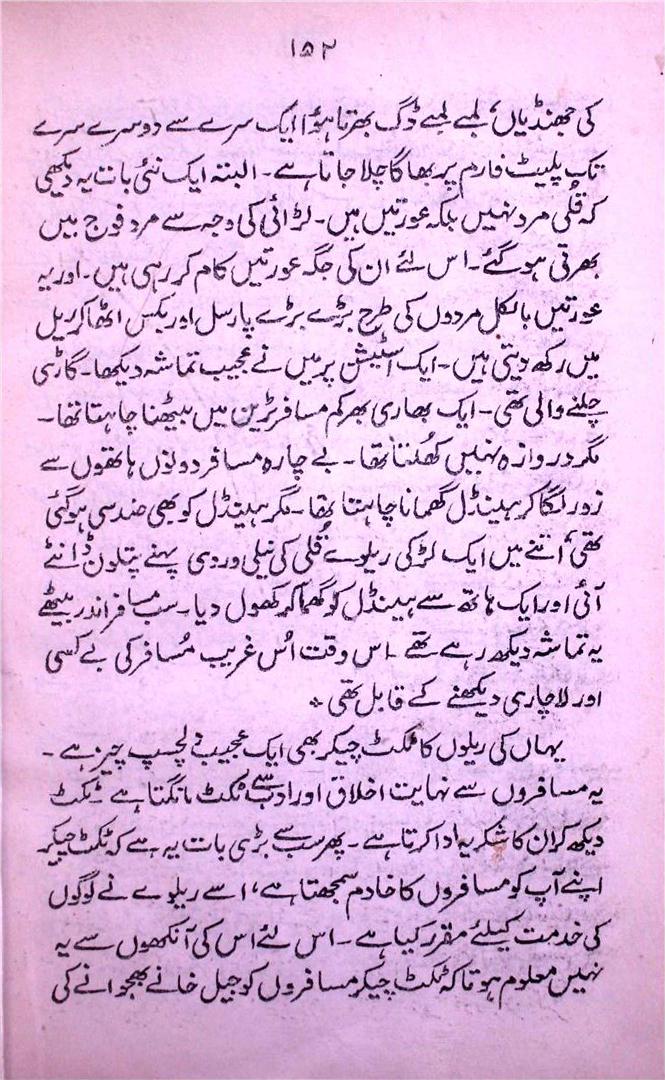 ۱۵۲
کی جھنڈیاں، لمبے لمبے ڈگ بھرتا ہؤا ایک سرے سے دوسرے سرے
تک پلیٹ فارم پر بھاگا چلا جاتا ہے۔ البتہ ایک نئی بات یہ دیکھی
کہ قُلی مرد نہیں بلکہ عورتیں ہیں۔ لڑائی کی وجہ سے مرد فوج میں
بھرتی ہو گئے۔ اس لئے ان کی جگہ عورتیں کام کر رہی ہیں۔ اور یہ
عورتیں بالکل مردوں کی طرح بڑے بڑے پارسل اور بکس اٹھا کر ریل
میں رکھ دیتی ہیں۔ ایک اسٹیشن پر میں نے عجیب تماشہ دیکھا۔ گاڑی
چلنے والی تھی۔ ایک بھاری بھرکم مسافر ٹرین میں بیٹھنا چاہتا تھا۔
مگر دروازہ نہیں کھُلتا تھا۔ بے چارہ مسافر دونوں ہاتھوں سے
زور لگا کر ہینڈل گھمانا چاہتا تھا۔ مگر ہینڈل کو بھی ضد سی ہو گئی
تھی، اتنے میں ایک لڑکی ریلوے قُلی کی نیلی وردی پہنے پتلون ڈانٹے
آئی اور ایک ہاتھ سے ہینڈل کو گھما کر کھول دیا۔ سب مسافر اندر بیٹھے
یہ تماشہ دیکھ رہے تھے۔ اس وقت اُس غریب مُسافر کی بے کسی
اور لاچاری دیکھنے کے قابل تھی٭
یہاں کی ریلوں کا ٹکٹ چیکر بھی ایک عجیب دلچسپ چیز ہے۔
یہ مسافروں سے نہایت اخلاق اور ادب سے ٹکٹ مانگتا ہے ٹکٹ
دیکھ کر ان کا شکریہ ادا کرتا ہے۔ پھر سب سے بڑی بات یہ ہے کہ ٹکٹ چیکر
اپنے آپ کو مسافروں کا خادم سمجھتا ہے، اسے ریلوے نے لوگوں
کی خدمت کیلئے مقرر کیا ہے۔ اس لئے اس کی آنکھوں سے یہ
نہیں معلوم ہوتا کہ ٹکٹ چیکر مسافروں کو جیل خانے بھجوانے کی